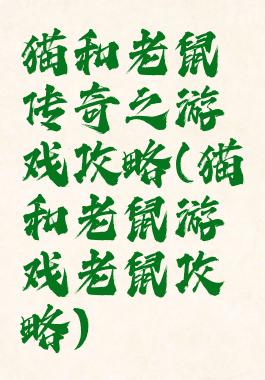 猫和老鼠
传奇之游
戏攻略(猫
和老鼠游
戏老鼠攻
略)